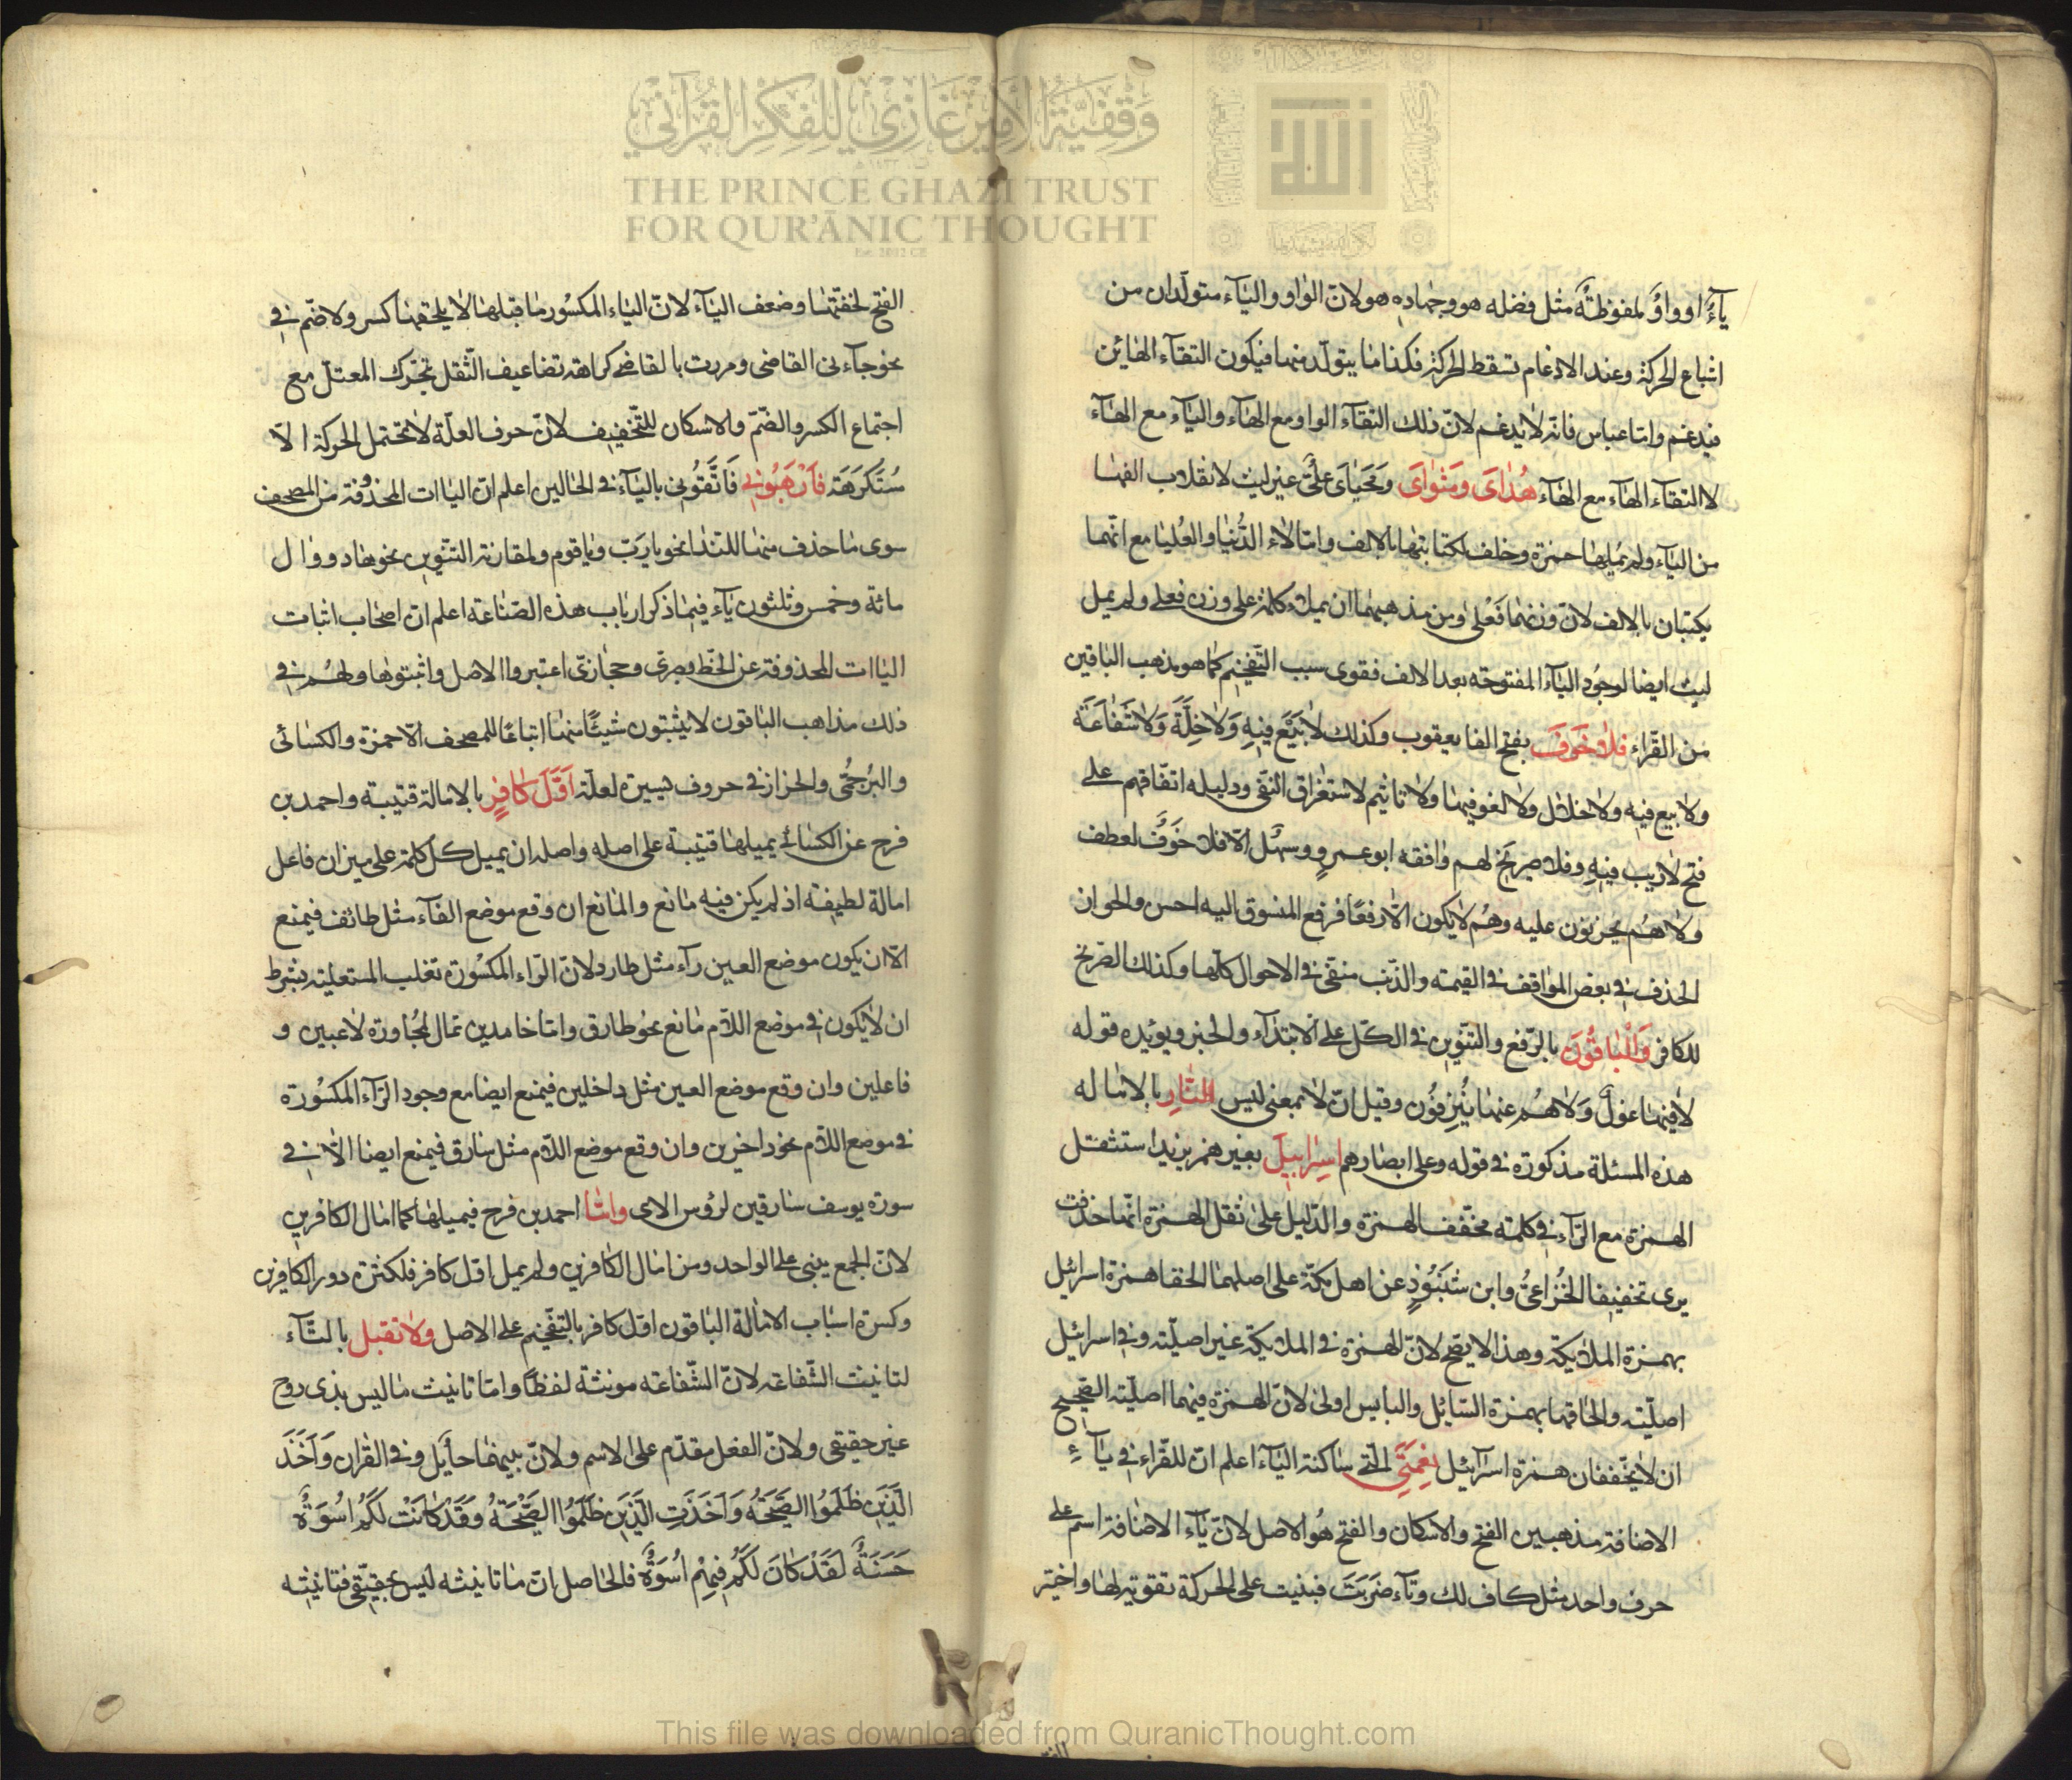 وقفية الأمير غازي للفكر القرآني
THE PRINCE GHAZI TRUST
FOR QUR'ĀNIC THOUGHT
Est. 2012 CE
ياءً او واوً لمفوظةً مثل فضله هو وجهاده هو لانّ الواو والياء متولّدان من
اشباع الحركة وعند الادغام تسقط الحركة فكذا ما يتولّد منهما فيكون التقاء الهائين
فيدغم وامّا عباس فانه لا يدغم لانّ ذلك التقاء الواو مع الهاء والياء مع الهاء
لا التقاء الهاء مع الهاء هُدٰاىَ ومَثوٰاىَ ومَحيٰاىَ علىٌّ غير ليث لانقلاب الفها
من الياء ولم يُمِلها حمزة وخلف لكتابتها بالالف وامّا لاء الدُّنيا والعُليا مع انّهما
يكتبان بالالف لانّ وزنهما فَعْلى ومن مذهبهما ان يميلا كلمة على وزن فعلى ولم يمل
ليث ايضا لوجُود الياء المفتوحة بعد الالف فقوى سبب التّفخيم كما هو مذهب الباقين
من القرّاء فلا خَوفَ بفتح الفا يعقوب وكذلك لا بَيْعَ فيهِ وَلا خلّةَ وَلا شَفٰاعَةَ
ولا بيع فيه ولا خلال ولا لغو فيها ولا تاثيم لاستغراق النّفى ودليله اتّفاقهم على
فتح لا ريب فيهِ وفلا صريخ لهم وافقه ابو عمرٍو وسهل الّا فلا خوفٌ لعطف
ولا هُم يحزنون عليه وهُم لا يكون الّا رفعًا فرفع المنسوق اليه احسن والحوان
الحذف في بعض المواقف في القيمة والذّنب منفى في الاحوال كلّها وكذلك الصّريخ
للكافر وَالبٰاقُونَ بالرّفع والتنّوين في الكلّ على الابتداء والخبر ويؤيده قوله
لا فيها غولٌ وَلا هُم عنها يُنزِفوُن وقيل انّ لا بمعنى ليس النّارِ بالامالة
هذه المسئلة مذكورة في قوله وعلى ابصارهم اسِرٰائيلَ بغير همز يزيد استثقل
الهمزة مع الرّاء في كلمة مخفّف الهمزة والدّليل على ثقل الهمزة انّما حذفت
يرى تخفيفا الخُزاعىُّ وابن شَنَبُوذٍ عن اهل مكّة على اصلهما الحقا همزة اسرائيل
بهمزة الملايكة وهذا لا يصّح لانّ الهمزة في الملايكة غير اصليّة وفي اسرائيل
اصليّة والحاقها بهمزة السّائل والبايس اولى لانّ الهمزة فيهما اصليّة الصّحيح
ان لا يخّففان همزة اسرآئيل نِعْمَتِيَ الّتي ساكنة الياء اعلم انّ للقّراء في ياءِ
الاضافة مذهبين الفتح والاسكان والفتح هُو الاصل لانّ ياء الاضافة اسم على
حرف واحد مثل كاف لك وتاء ضَرَبتَ فبنيت على الحركة تقوية لها واختير
الفتح لخفّتها وضعف الياء لانّ الياء المكسُور ما قبلها لا يلحقها كسر ولا ضّم في
نحو جآءنى القاضى ومررت بالقاضى كراهة تضاعيف الثّقل تحّرك المعتلّ مع
اجتماع الكسر والضّم والاسكان للتّخفيف لانّ حرف العلّة لا تحتمل الحركة الّا
مُستكرَهَة فَارْهَبُونِي فَاتَّقُونِي بالياء في الحالين اعلم انّ الياات المحذُوفة من المصحف
سوى ما حذف منها للندا نحو يا رَبّ ويا قوم ولمقارنة التنّوين نحو هاد ووال
مائة وخمس وثلثون ياء فيما ذكر ارباب هذه الصّناعة اعلم انّ اصحاب اثبات
الياات المحذوفة عن الخّط وبصرى وحجازىّ اعتبروا الاصل واثبتوها ولهُم في
ذلك مذاهب الباقون لا يثبتون شيئًا منها اتباعًا للمصحف الّا حمزة والكسائى
والبُرجُمى والخزاز في حروف يسيرة لعلّة اَوّلَ كافرٍ بالامالة قتيبة واحمد بن
فرح عن الكسائى يميلها قتيبة على اصله واصله ان يميل كلّ كلمة على ميزان فاعل
امالة لطيفة اذ لم يكن فيه مانع والمانع ان وقع موضع الفاء مثل طائف فيمنع
الّا ان يكون موضع العين راء مثل طارد لانّ الرّاء المكسُورة تغلب المستعلية بشرط
ان لا يكون في موضع اللّام مانع نحو طارق وامّا خامدين تمال لمجُاورة لاعبين و
فاعلين وان وقع موضع العين مثل داخلين فيمنع ايضا مع وجود الرّاء المكسُورة
في موضع اللّام نحو داخرين وان وقع موضع اللّام مثل سارق فيمنع ايضا الّا في
سورة يوسف سارقين لرؤس الاى وامّا احمد بن فرح فيميلها كما امال الكافرين
لانّ الجمع يبنى على الواحد ومن امال الكافرين ولم يمل اوّل كافر فلكثرة دور الكافرين
وكسرة اسباب الامالة الباقون اوّل كافر بالتّفخيم على الاصل ولا تقبل بالتّاء
لتانيث الشّفاعة لانّ الشّفاعة مونثة لفظًا وامّا تانيث ما ليس بذى روح
غير حقيقى ولانّ الفعل مقدّم على الاسم ولانّ بينهما حائل وفى القران وَاَخَذَ
الَّذينَ ظَلَمُوا الصَّيْحَةُ وَاَخَذَتِ الَّذينَ ظَلَمُوا الصَّيْحَةُ وَقَدْ كٰانَتْ لَكُمْ اسُوَةٌ
حَسَنَةٌ لَقَدْ كٰانَ لَكُمْ فيهِمْ اُسْوَةٌ فالحاصل انّ ما تانيثه ليس بحقيقى فتانيثه
This file was downloaded from QuranicThought.com